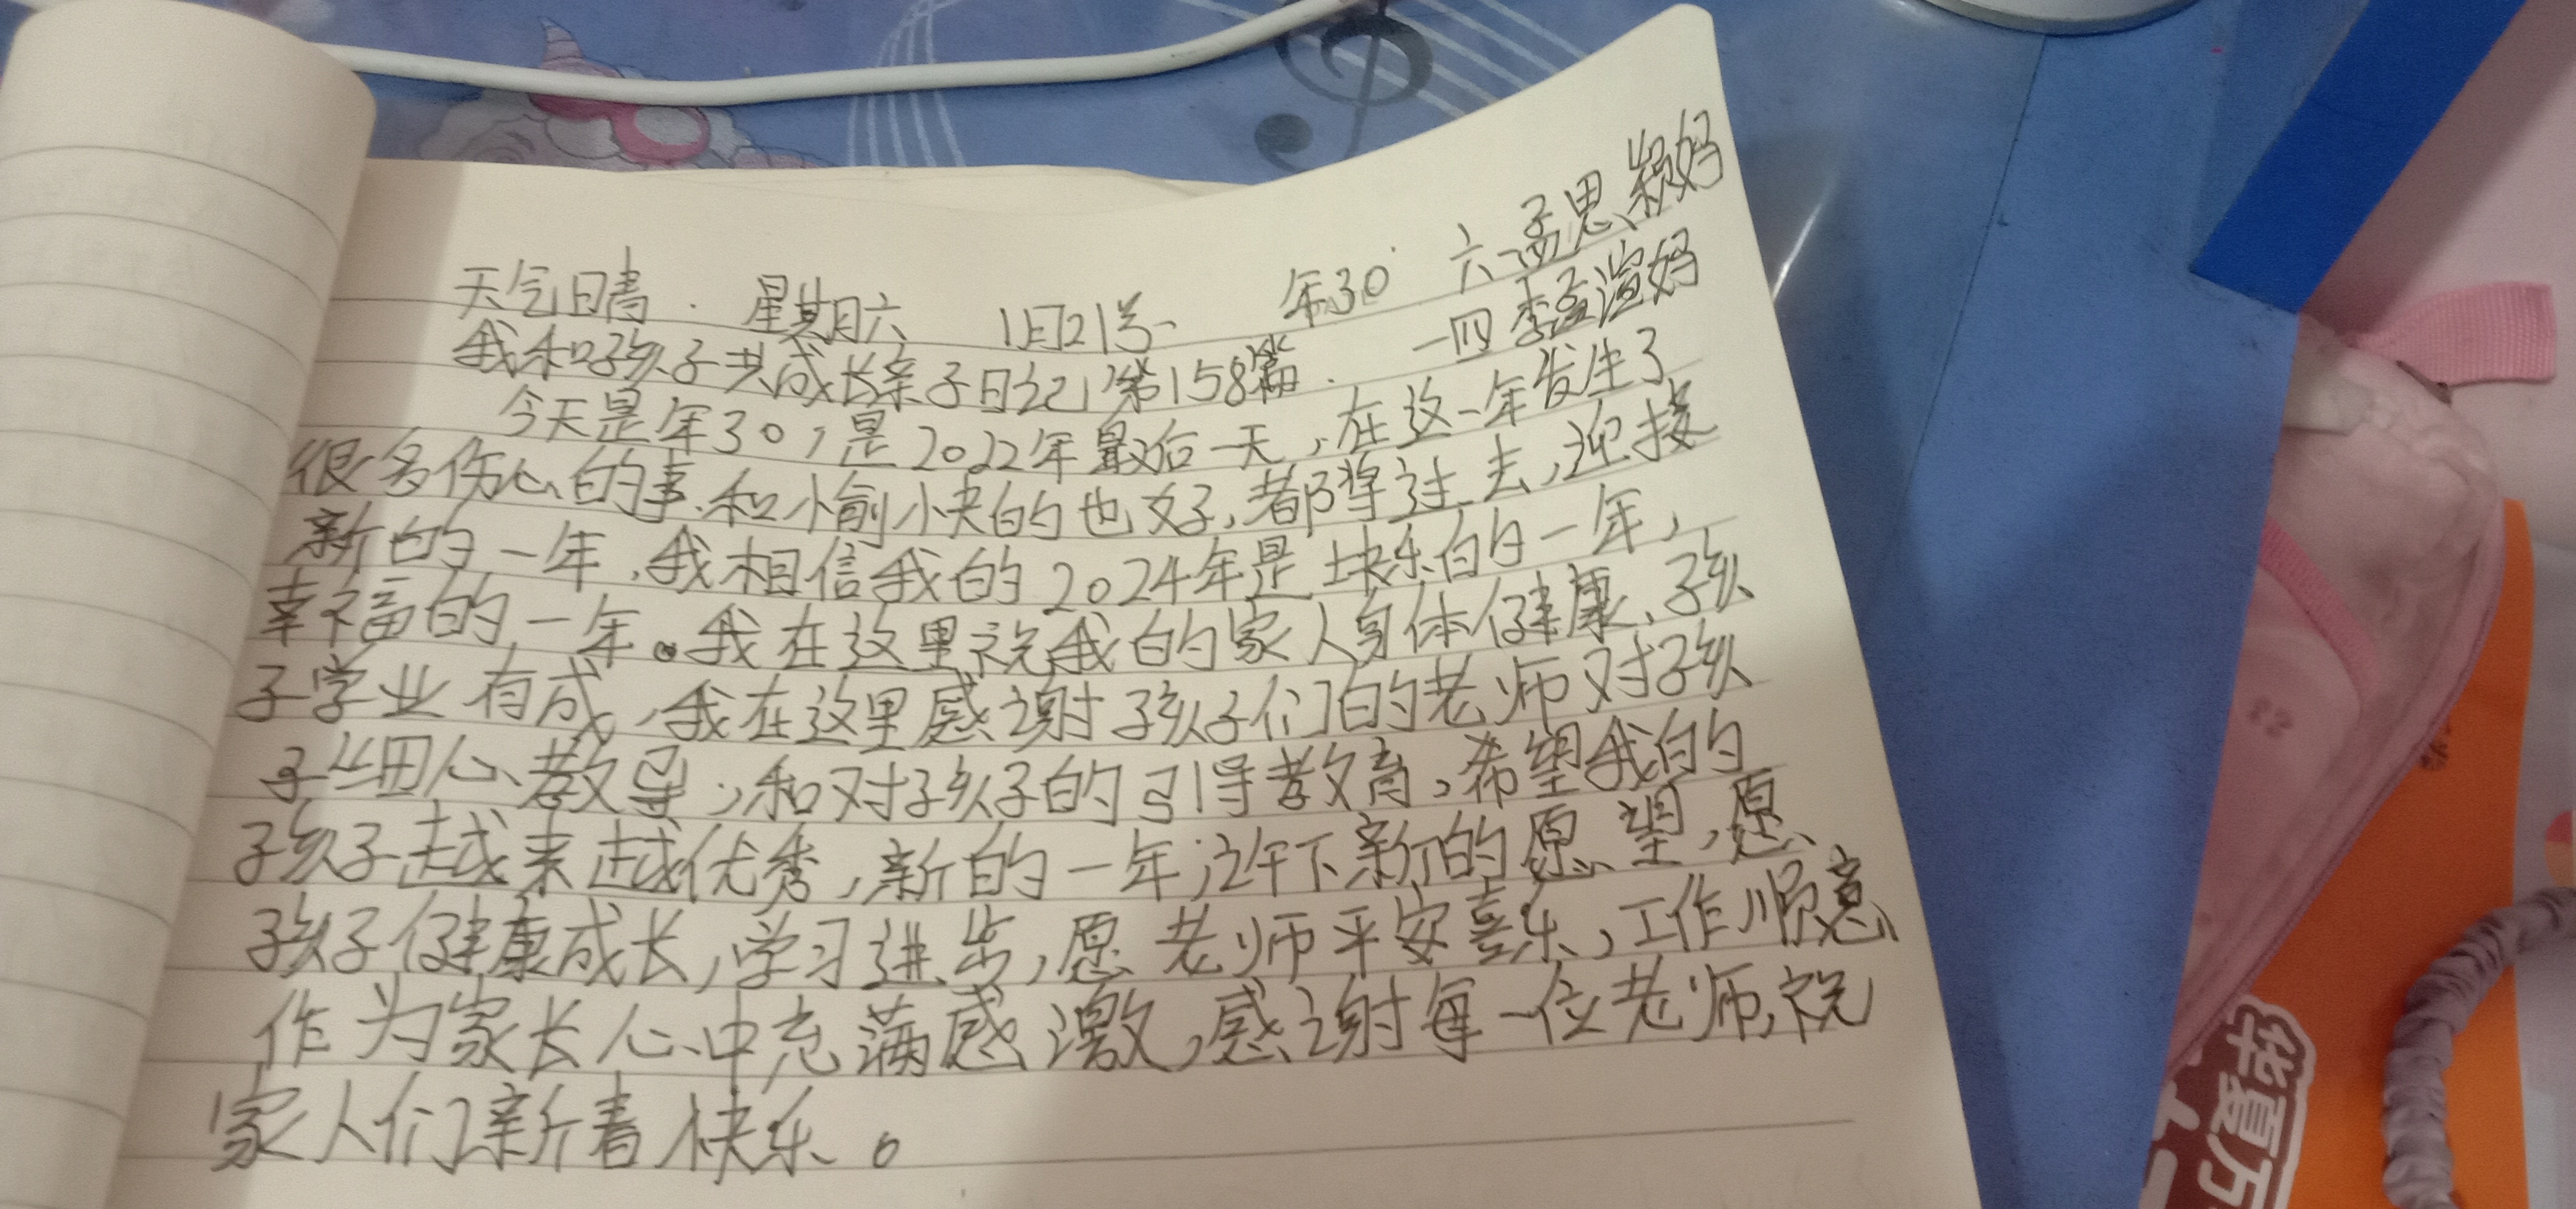 天气晴. 星期六 1月21号、 年30 六、孟思颖妈
我和孩子共成长亲子日记第158篇. 一四李孟渲妈
今天是年30，是2022年最后一天，在这一年发生了
很多伤心的事.和愉快的也好，都将过去，迎接
新的一年，我相信我的2024年是快乐的一年，
幸福的一年。我在这里祝我的家人身体健康、孩
子学业有成，我在这里感谢孩子们的老师对孩
子细心教导，和对孩子的引导教育，希望我的
孩子越来越优秀，新的一年许下新的愿望，愿
孩子健康成长，学习进步，愿老师平安喜乐，工作顺意
作为家长心中充满感激，感谢每一位老师，祝
家人们新春快乐。
华夏万